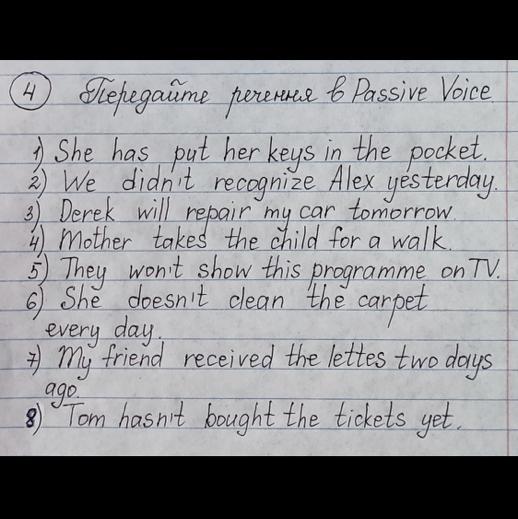 4 Передайте речення в Passive Voice.
1) She has put her keys in the pocket.
2) We didn't recognize Alex yesterday.
3) Derek will repair my car tomorrow.
4) Mother takes the child for a walk.
5) They won't show this programme on TV.
6) She doesn't clean the carpet
every day.
7) My friend received the lettes two days
ago.
8) Tom hasn't bought the tickets yet.